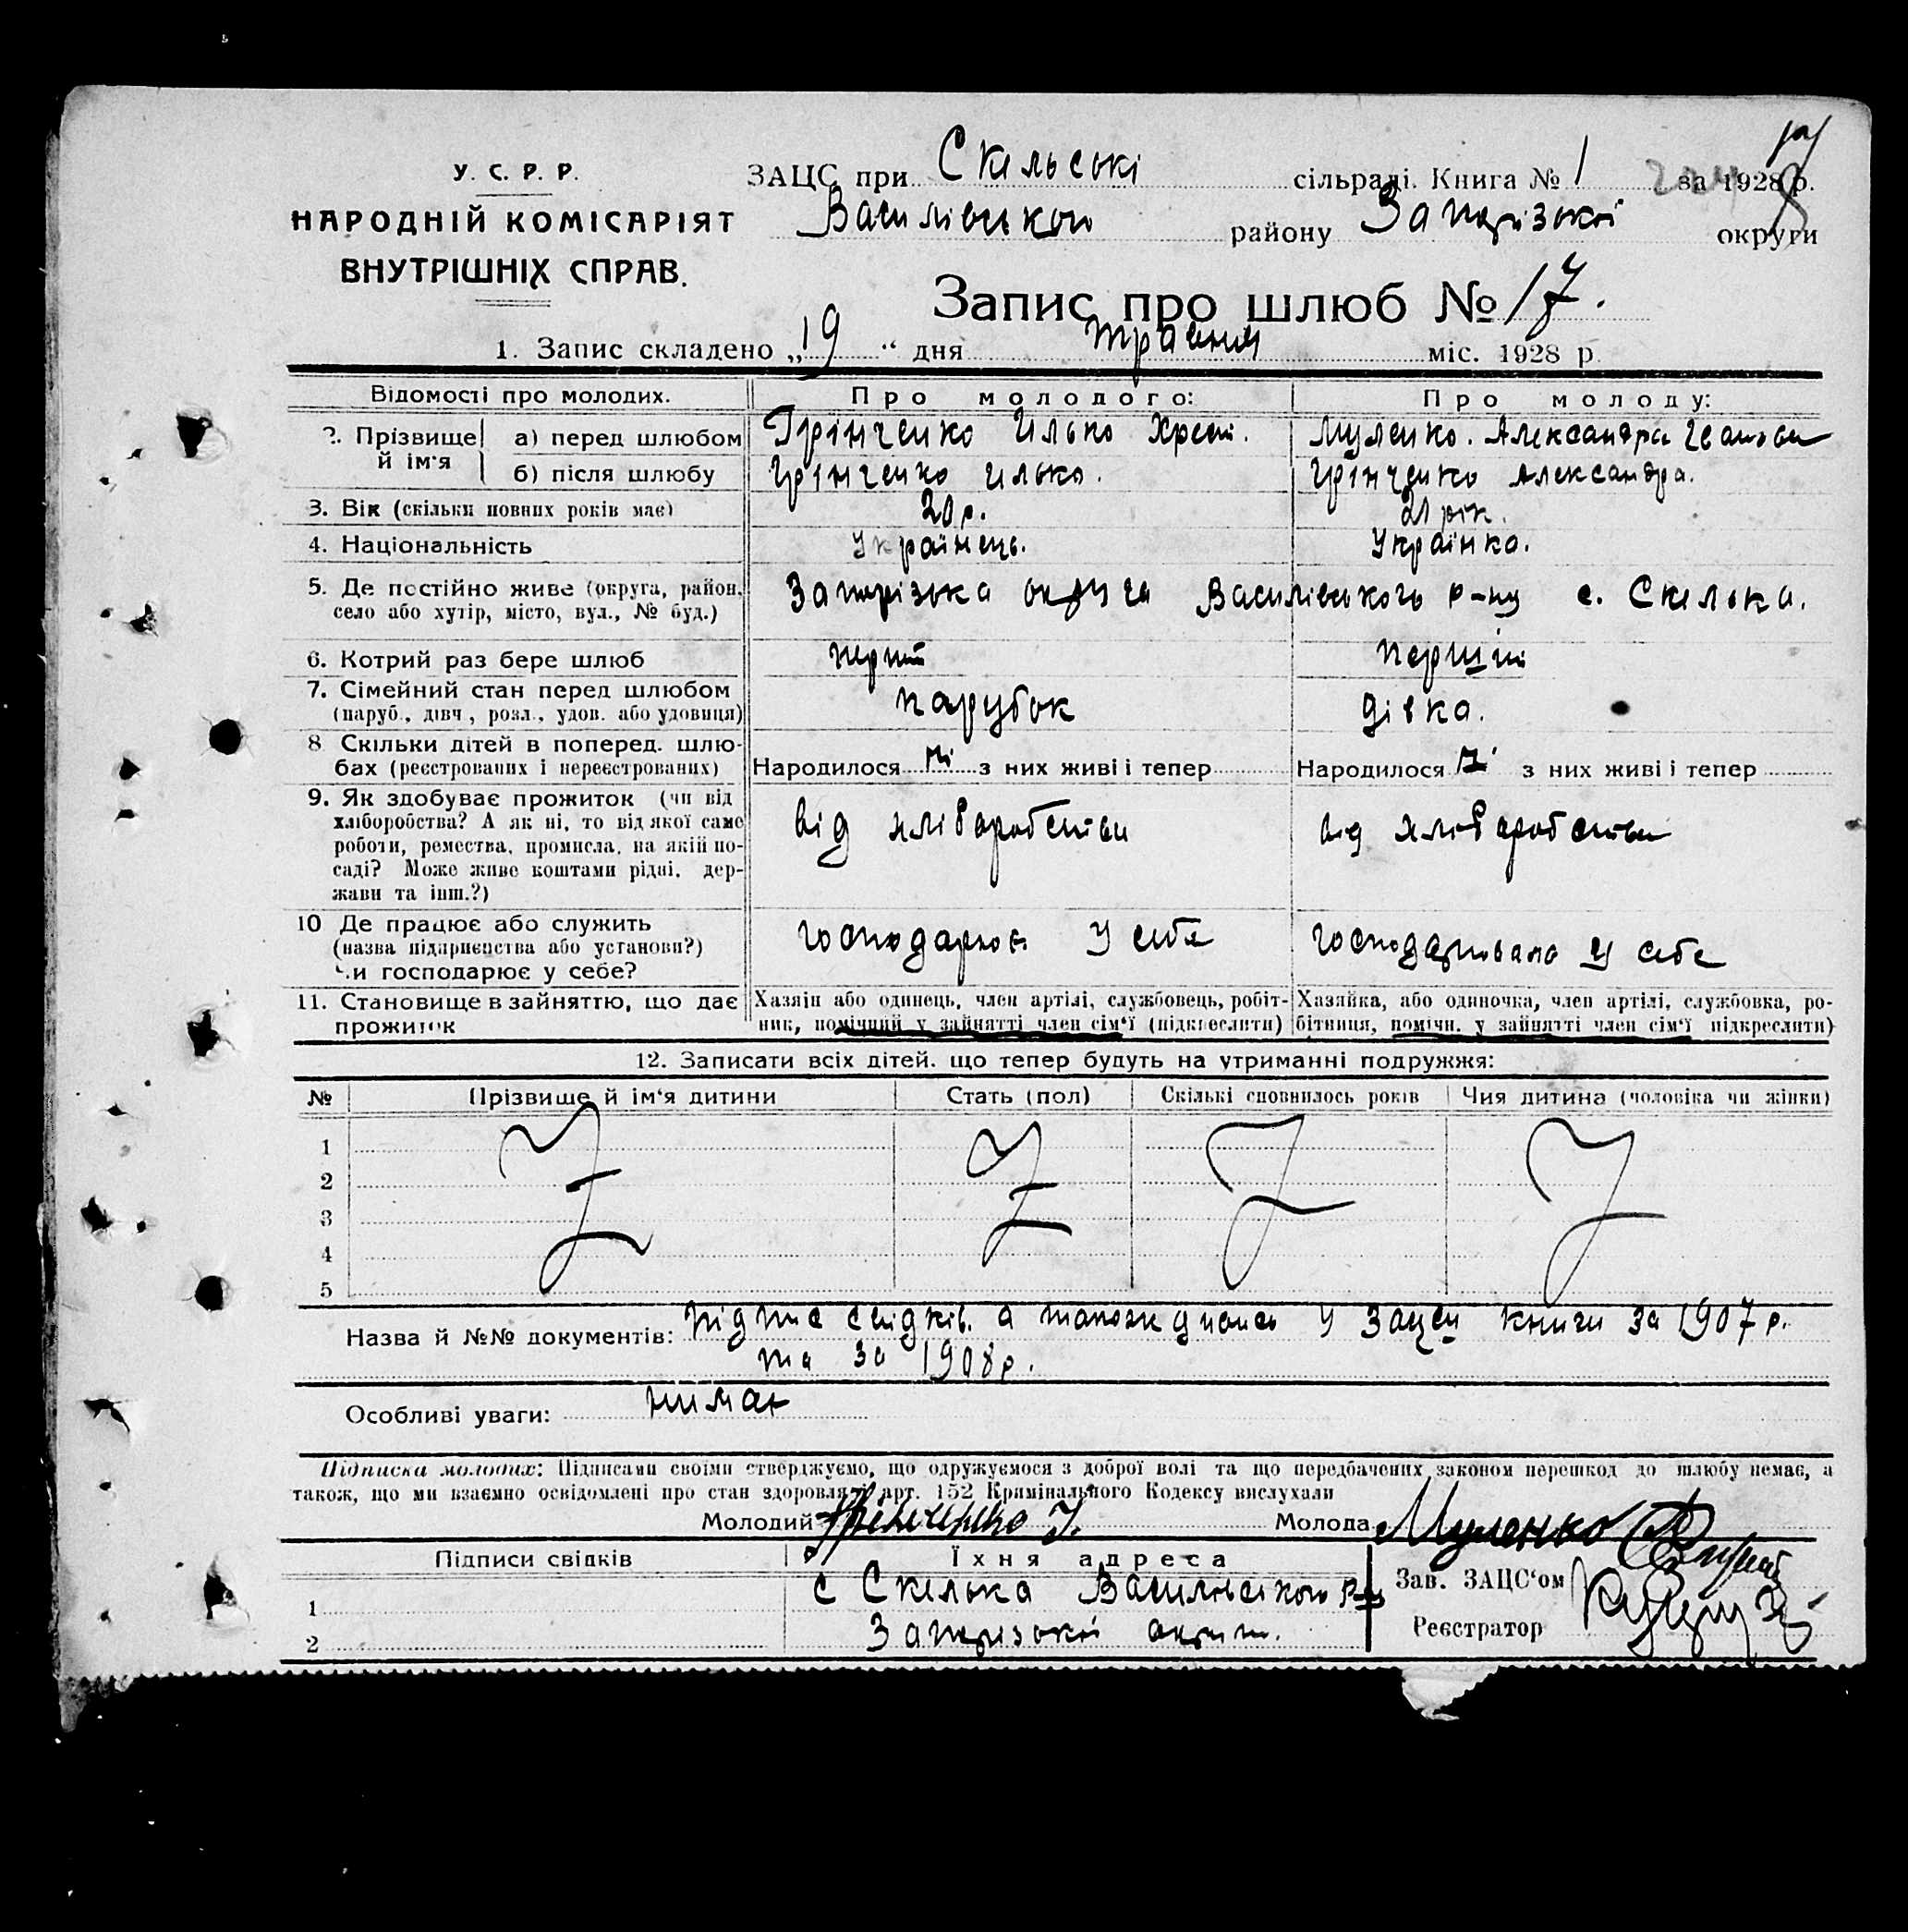 У. С. Р. Р.
НАРОДНІЙ КОМІСАРІЯТ
ВНУТРІШНІХ СПРАВ.
ЗАЦС при Скельські сільраді. Книга № 1 за 1928 р.
Василівського району Запорізької округи
Запис про шлюб № 17.
1. Запис складено „19“ дня травня міс. 1928 р
Відомості про молодих. Про молодого: Про молоду:
2. Прізвище й ім'я а) перед шлюбом Грінченко Илько Хрест. Муленко. Александра Іванівна
б) після шлюбу Грінченко Илько. Грінченко Александра.
3. Вік (скільки повних років має) 20 р. 21 рік.
4. Національність Українець. Українка.
5. Де постійно живе (округа, район, село або хутір, місто, вул., № буд.) Запорізька округа Василівського р-ну с. Скелька.
6. Котрий раз бере шлюб перший перший
7. Сімейний стан перед шлюбом (паруб., дівч., розл., удов. або удовиця) парубок дівка.
8 Скільки дітей в поперед. шлюбах (реєстрованих і нереєстрованих) Народилося ні з них живі і тепер Народилося ні з них живі і тепер
9. Як здобуває прожиток (чи від хліборобства? А як ні, то від якої саме роботи, ремества, промисла, на якій посаді? Може живе коштами рідні, держави та інш.?) від хліборобства від хліборобства
10 Де працює або служить (назва підприємства або установи?) Чи господарює у себе? господарює у себе господарювала у себе
11. Становище в зайняттю, що дає прожиток Хазяїн або одинець, член артілі, службовець, робітник, помічний у зайнятті член сім'ї (підкреслити) Хазяйка, або одиночка, член артілі, службовка, робітниця, помічн. у зайнятті член сім'ї підкреслити)
12. Записати всіх дітей, що тепер будуть на утриманні подружжя:
№ Прізвище й ім'я дитини Стать (пол) Скількі сповнилось років Чия дитина (чоловіка чи жінки)
1
2
3
4
5
Назва й №№ документів: підпис свідків, а також дивись у Зацси книги за 1907 р.
та за 1908 р.
Особливі уваги: нимає
Підписка молодих: Підписами своїми стверджуємо, що одружуємося з доброї волі та що передбачених законом перешкод до шлюбу немає, а
також, що ми взаємно освідомлені про стан здоровля і арт. 152 Кримінального Кодексу вислухали
Молодий Грінченко І. Молода Муленко
Підписи свідків Їхня адреса
1 с Скелька Василівського р-ну
2 Запорізької округи.
Зав. ЗАЦС'ом
Реєстратор